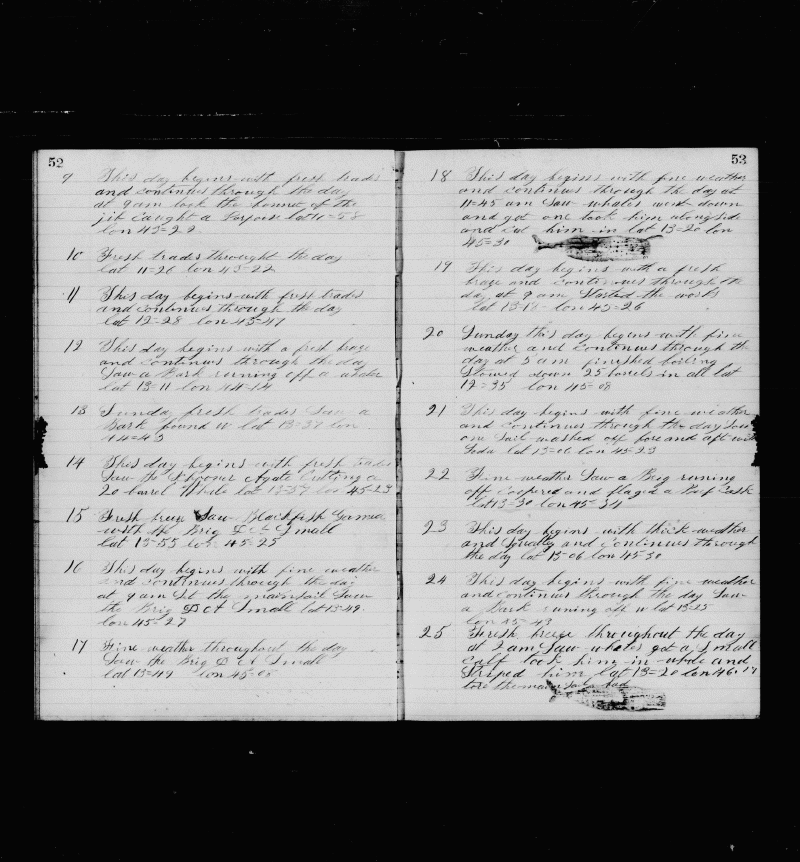 52
9 This day begins with fresh trades
and continues through the day
at 9 am took the bonnet of the
jib caught a Porpose lat 11=58
lon 43=22
10 Fresh trades throught the day
lat 11=26 lon 43=22
11 This day begins with fresh trades
and continues through the day
lat 12=28 lon 43=47
12 This day begins with a fresh breze
and continues through the day
Saw a Bark running off a whaler
lat 13=11 lon 44=14
13 Sunday fresh trades Saw a
Bark bound W lat 13=37 lon
44=43
14 This day begins with fresh trades
Saw the Schooner Agate Cutting a
20 barrel Whale lat 13=57 lon 45=23
15 Fresh breze Saw Blackfish Gamed
with the Brig D C A Small
lat 13=55 lon 45=25
16 This day begins with fine weather
and continues through the day
at 9 am Set the mainsail Saw
the Brig D C A Small lat 13=49
lon 45=27
17 Fine weather throughout the day
Saw the Brig D C A Small
lat 13=49 lon 45=05
53
18 This day begins with fine weather
and continues through the day at
11=45 am Saw whales went down
and got one took him alongside
and cut him in lat 13=20 lon
45=30
19 This day begins with a fresh
breze and continues through the
day at 9 am Started the works
lat 13=18 lon 45=26
20 Sunday this day begins with fine
weather and continues through the
day at 5 am finished boiling
Stowed down 25 barels in all lat
12=35 lon 45=08
21 This day begins with fine weather
and continues through the day Saw
one Sail washed off fore and aft with
Soda lat 13=06 lon 45=23
22 Fine weather Saw a Brig runing
off Coopered and flaged a Beef Cask
lat 13=30 lon 45=34
23 This day begins with thick weather
and Squally and continues through
the day lat 13=06 lon 45=30
24 This day begins with fine weather
and continues through the day Saw
a Bark runing off W lat 13=25
lon 45=43
25 Fresh breeze throughout the day
at 2 am Saw whales got a Small
calf took him in whole and
Striped him lat 13=20 lon 46=17
tore the main Sail bad